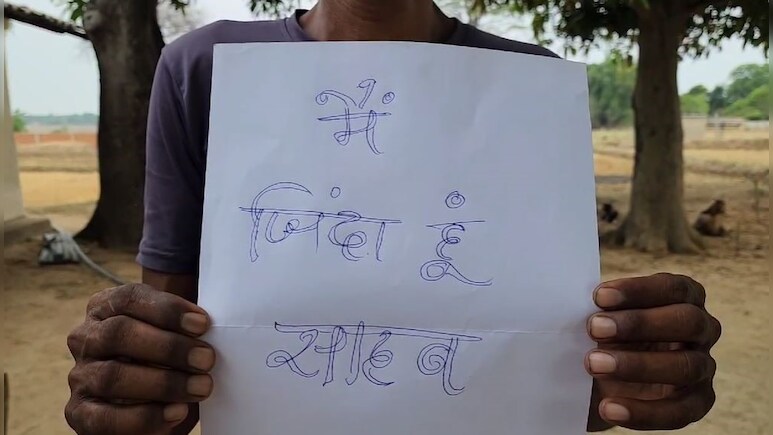 मैं
जिंदा हूं
साहब